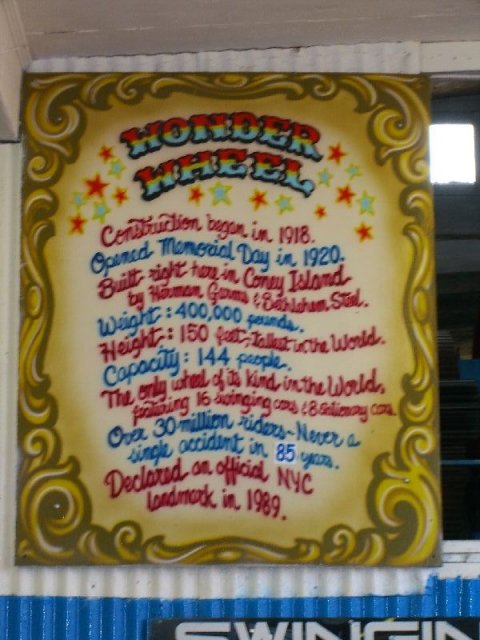 WONDER
WHEEL
Construction began in 1918.
Opened Memorial Day in 1920.
Built right here in Coney Island
by Herman Garms & Bethlehem Steel.
Weight: 400,000 pounds.
Height: 150 feet, Tallest in the World.
Capacity: 144 people.
The only wheel of its kind in the World,
featuring 16 swinging cars & 8 stationary cars.
Over 30 million riders-Never a
single accident in 85 years.
Declared an official NYC
landmark in 1989.